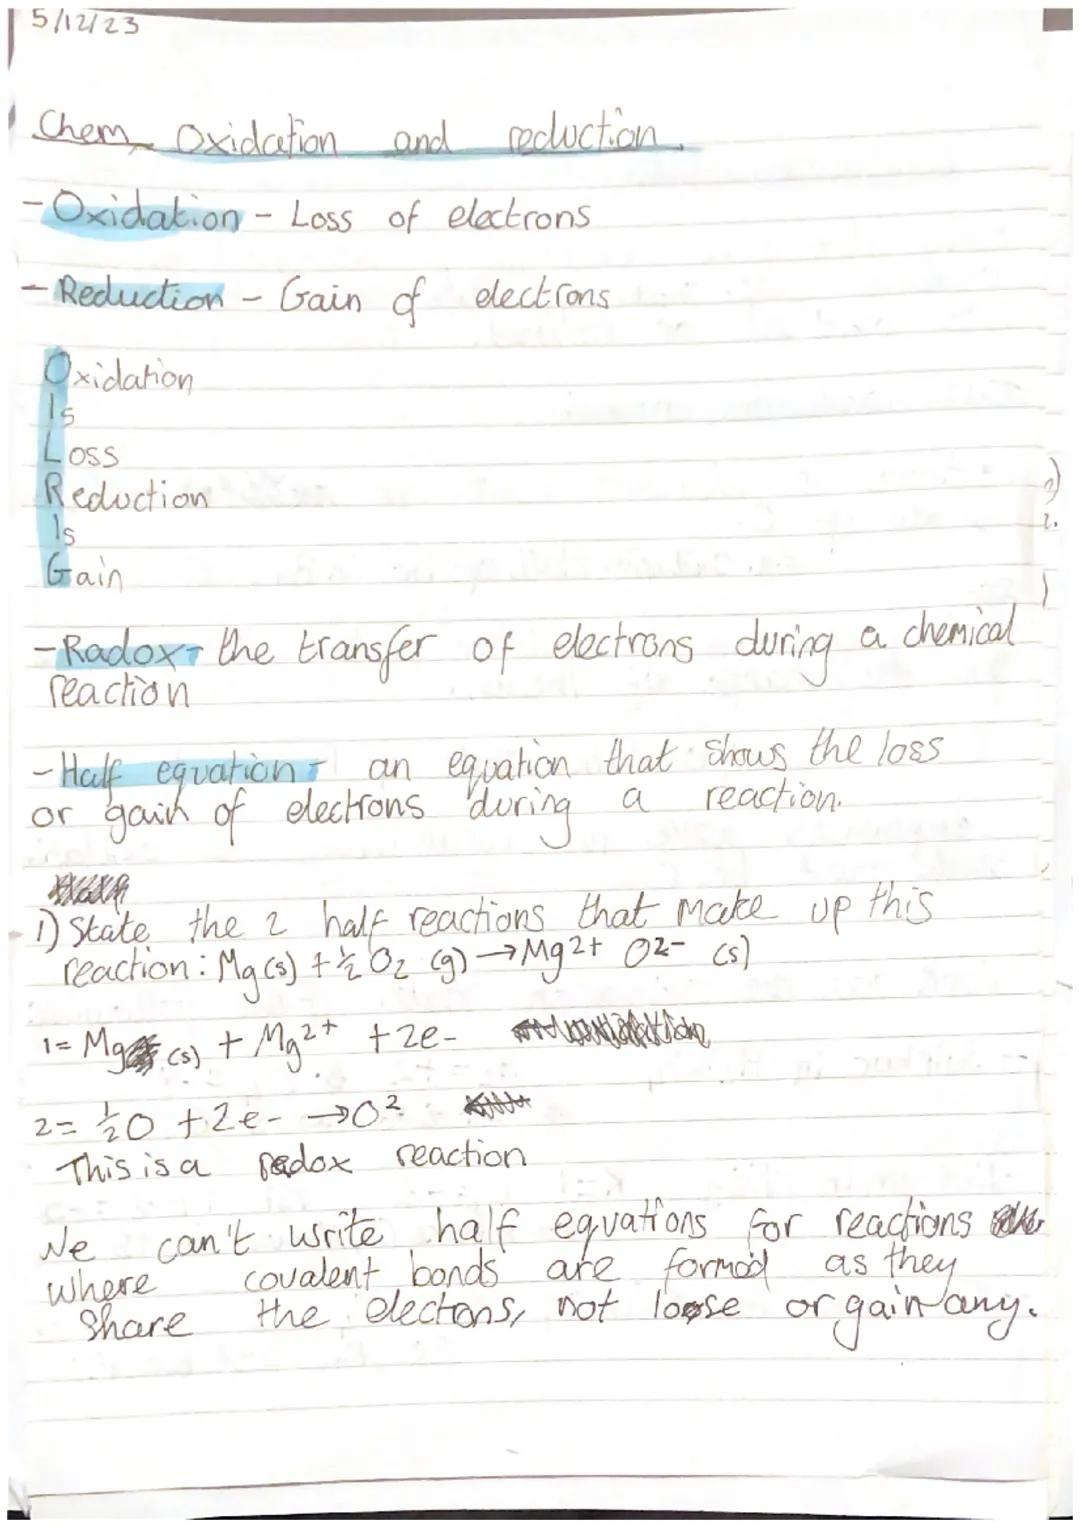 5/12/23
Chem Oxidation and reduction.
- Oxidation - Loss of electrons
- Reduction - Gain of electrons
Oxidation
Is
Loss
Reduction
Is
Gain
- Radox - the transfer of electrons during a chemical
reaction
- Half equation - an equation that shows the loss
or gain of electrons during a reaction.
1) State the 2 half reactions that make up this
reaction: Mg (s) + ½ O₂ (g) → Mg 2+ O2- (s)
1= Mg (s) + Mg²⁺ + 2e-
2= ½O + 2e- → O²
This is a redox reaction
We can't write half equations for reactions
where covalent bonds are formed as they
share the electrons, not loose or gain any.